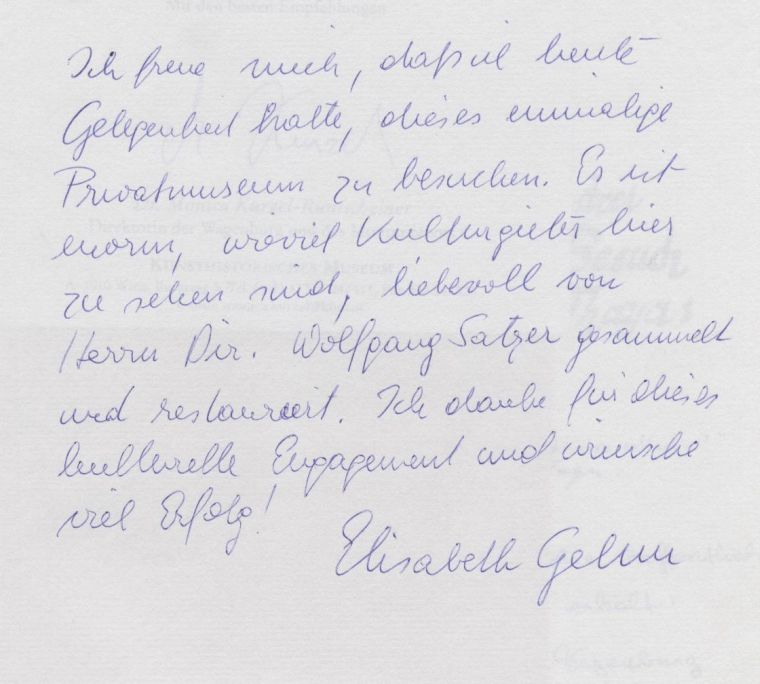 Ich freue mich, daß ich heute
Gelegenheit hatte, dieses einmalige
Privatmuseum zu besuchen. Es ist
enorm, wieviel Kulturgüter hier
zu sehen sind, liebevoll von
Herrn Dir. Wolfgang Satzer gesammelt
und restauriert. Ich danke für dieses
kulturelle Engagement und wünsche
viel Erfolg!
Elisabeth